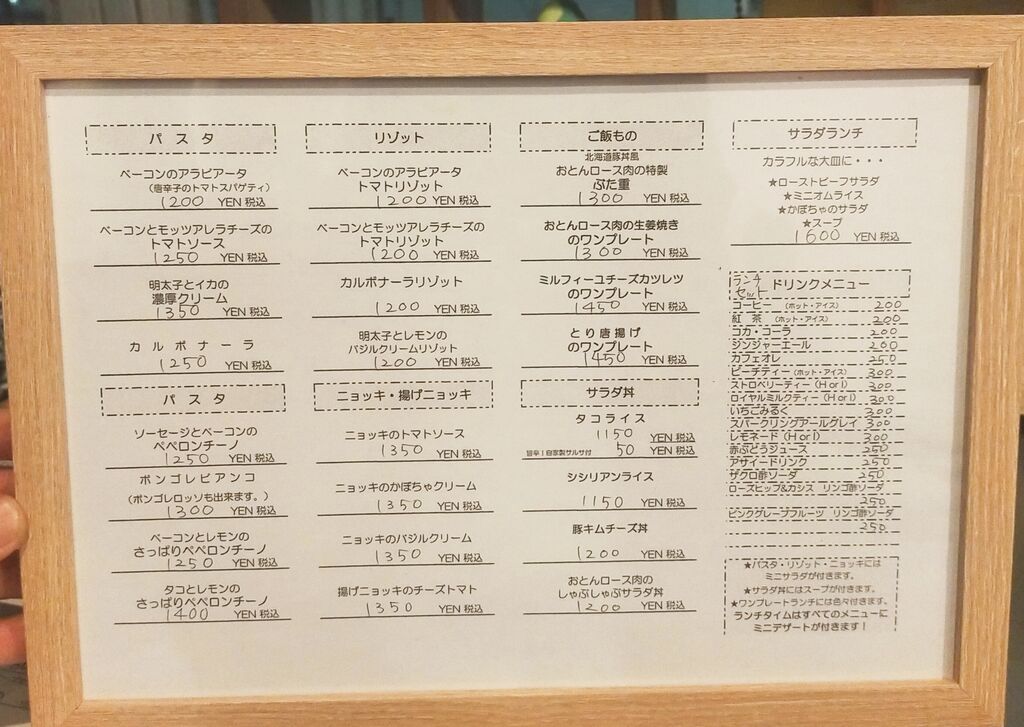 パスタ
ベーコンのアラビアータ
(唐辛子のトマトスパゲティ)
1200 YEN 税込
ベーコンとモッツアレラチーズの
トマトソース
1250 YEN 税込
明太子とイカの
濃厚クリーム
1350 YEN 税込
カルボナーラ
1250 YEN 税込
パスタ
ソーセージとベーコンの
ペペロンチーノ
1250 YEN 税込
ボンゴレビアンコ
(ボンゴレロッソも出来ます。)
1300 YEN 税込
ベーコンとレモンの
さっぱりペペロンチーノ
1250 YEN 税込
タコとレモンの
さっぱりペペロンチーノ
1400 YEN 税込
リゾット
ベーコンのアラビアータ
トマトリゾット
1200 YEN 税込
ベーコンとモッツアレラチーズの
トマトリゾット
1200 YEN 税込
カルボナーラリゾット
1200 YEN 税込
明太子とレモンの
バジルクリームリゾット
1200 YEN 税込
ニョッキ・揚げニョッキ
ニョッキのトマトソース
1350 YEN 税込
ニョッキのかぼちゃクリーム
1350 YEN 税込
ニョッキのバジルクリーム
1350 YEN 税込
揚げニョッキのチーズトマト
1350 YEN 税込
ご飯もの
北海道豚丼風
おとんロース肉の特製
ぶた重
1300 YEN 税込
おとんロース肉の生姜焼き
のワンプレート
1300 YEN 税込
ミルフィーユチーズカツレツ
のワンプレート
1450 YEN 税込
とり唐揚げ
のワンプレート
1450 YEN 税込
サラダ丼
タコライス
1150 YEN 税込
旨辛!自家製サルサ付 50 YEN 税込
シシリアンライス
1150 YEN 税込
豚キムチーズ丼
1200 YEN 税込
おとんロース肉の
しゃぶしゃぶサラダ丼
1200 YEN 税込
サラダランチ
カラフルな大皿に・・・
★ローストビーフサラダ
★ミニオムライス
★かぼちゃのサラダ
★スープ
1600 YEN 税込
ランチセット ドリンクメニュー
コーヒー (ホット・アイス) 200
紅茶 (ホット・アイス) 200
コカ・コーラ 200
ジンジャーエール 200
カフェオレ 250
ピーチティー(ホット・アイス) 300
ストロベリーティー(H or I) 300
ロイヤルミルクティー(H or I) 300
いちごみるく 300
スパークリングアールグレイ 300
レモネード(H or I) 300
赤ぶどうジュース 250
アサイードリンク 250
ザクロ酢ソーダ 250
ローズヒップ&カシス リンゴ酢ソーダ
250
ピンクグレープフルーツ リンゴ酢ソーダ
250
★パスタ・リゾット・ニョッキには
ミニサラダが付きます。
★サラダ丼にはスープが付きます。
★ワンプレートランチには色々付きます。
ランチタイムはすべてのメニューに
ミニデザートが付きます!